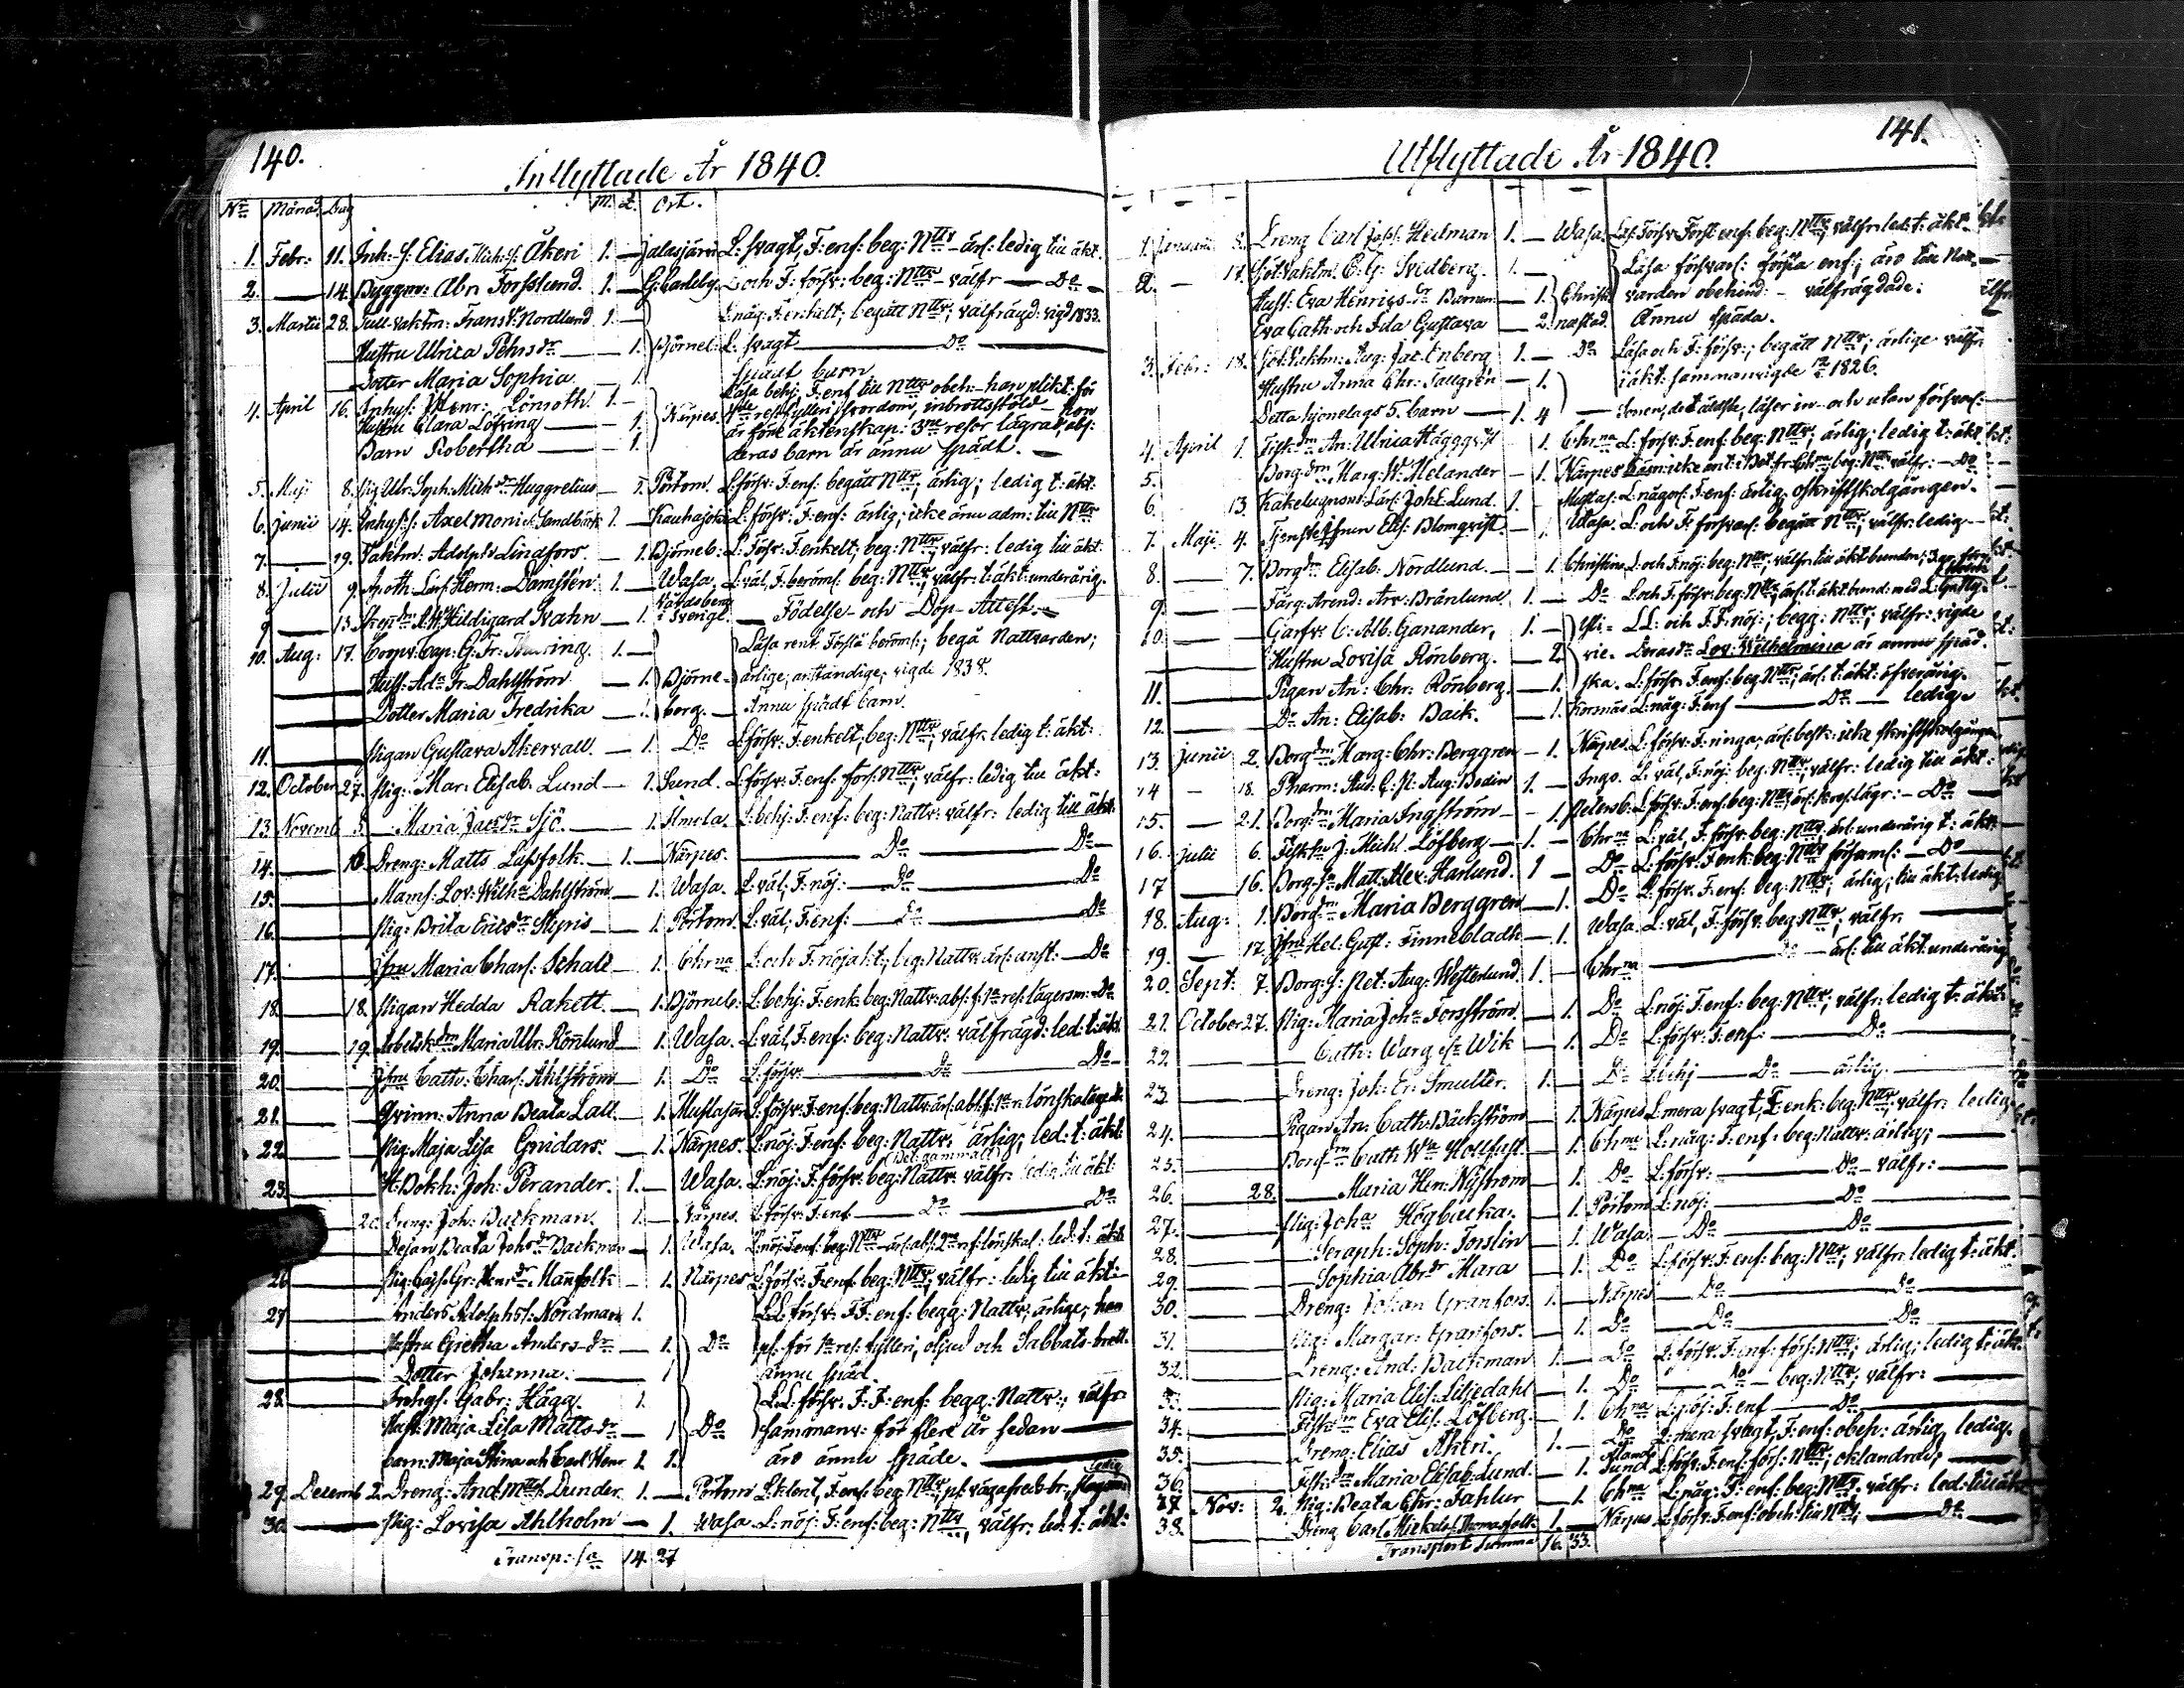 140.
Inflyttade År 1840.
No Månad Dag M. Q. Ort.
1. Febr: 11. Inh:-S: Elias Mich:s: Åkeri 1. — Jalasjärvi L: svagt, F: enf: beg: Nttv - ärl: ledig till äkt.
2. — 14. Byggm: Abr: Forsslund. 1. — G:Carleby. L och F: försv: beg: Nttv - välfr — Do —
3. Martii 28. Tull-vaktm: Frans Nordlund 1. — L: någ: F: enkelt; begått Nttv; välfrägd: vigd 1833.
Hustru Ulrica Pehrsdr — 1. Björneb: L: svagt — Do —
Dotter Maria Sophia — 1. Spädt barn
4. April 16. Inhys: Henr: Lönroth. 1. — Läsa behj: F: enf till Nttv obeh: - han plikt: för
Hustru Clara Löfving — 1. Närpes. resf fylleri, svordom, inbrottsstöld - hon
Barn Robertha — 1. är före äktenskap: 3ne resor lägrad, abs:
deras barn är ännu spädt. —
5. Maji 8. Pig Ulr: Soph: Mich:dr Huggrelius — 1. Pörtom. L: försv: F: enf: begått Nttv; ärlig; ledig t: äkt.
6. Junii 14. Inhys:s: Axel Monick: Sandbäck 1. — Kauhajoki L: försv: F: enf: ärlig; icke ännu adm: till Nttv
7. — 19. Vaktm: Adolph Lindfors. — 1. Björneb: L: Försv: F: enkelt; beg: Nttv; välfr: ledig till äkt.
8. Julii 9. Apoth: Lärl: Herm: Damstén. 1. — Wasa. L: väl, F: berömf: beg: Nttv; välfr: t: äkt: underårig.
9 — 13. Hildigard Svahn — 1. i Sverige. — Födelse- och Dop-Attest. —
10. Aug: 17. Coopv: Cap: G: Fr: Thuring. 1. — Läsa rent Förstå berömf:; begå Nattvarden;
Hust: Ada Fr: Dahlström — 1. Björne- ärlige; anständige; vigde 1838.
Dotter Maria Fredrika — 1. berg. — Ännu spädt barn.
11. — Pigan Gustava Åkervall — 1. Do L: försv: F: enkelt; beg: Nttv; välfr: ledig t: äkt:
12. October 27. Pig: Mar: Elisab: Lund — 1. Sund. L: försv: F: enf: förs: Nttv; välfr: ledig till äkt:
13 Novemb 3. — Maria Jacsdr Sjö. — 1. Ilmola. L: behj: F: enf: beg: Nattv: välfr: ledig till äkt:
14. — 16. Dreng: Matts Lassfolk — 1. — Närpes. — Do — Do —
15. — Mams: Lov: Wilha Dahlström — 1. Wasa. L: väl; F: nöj: — Do — Do
16. — Pig: Brita Ericsdr Stipris — 1. Pörtom. L: väl; F: enf: — Do — Do
17. — Jfru Maria Charl: Schale — 1. Chrna L: och F: nöjakt; beg: Nattv: ärl: anst: — Do
18. — 18. Pigan Hedda Rakett — 1. Björneb: L: behj: F: enk: beg: Nattv: abs: f: 1a res: lägersm: Do
19. — 19. Maria Ulr: Rönnlund — 1. Wasa. L: väl, F: enf: beg: Nattv: välfrägd: led: t: äkt
20. — Jfru Cath: Charl: Ahlström — 1. Do L: försv: — Do — Do —
21. — Qvinn: Anna Beata Lall — 1. Mustasari L: försv: F: enf: beg: Nattv: ärl: abs: f: 1a r: lönskaläge
22. — Pig: Maja Lisa Gnidars. — 1. Närpes. L: nöj: F: enf: beg: Nattv: ärlig; led: t: äkt:
23. — Joh: Perander. 1. — Wasa. L: nöj: F: försv: beg: Nattv: välfr: ledig till äkt:
20. Dreng: Joh: Backman. 1. — Närpes. L: försv: F: enf — Do — Do
Beata Johsdr Backman — 1. Wasa. L: nöj: F: enf: beg: Nttv - ärl: abs: 2ne ref: lönskal: led: t: äkt
26 — Pig: Cajs: Gr: Henrdr Mannfolk — 1. Närpes L: försv: F: enf: beg: Nttv; välfr: ledig till äkt:
27 — Anders Adolphs: Nordman 1. L L: försv: F F: enf: begg: Nattv; ärlige; han
Hustru Gretha Andersdr — 1. Do pl: för 1a res: fylleri, oljud och Sabbats-brott.
Dotter Johanna. — 1 ännu späd.
28. — Inhys: Gabr: Hägg. 1. L L: försv: F: F: enf: begg: Nattv; välfr:
Hust: Maja Lisa Mattsdr — 1 Do sammanv: för flere år sedan —
barn: Maja Stina och Carl Henr 1. 1. äro ännu späde. —
29. Decemb 2. Dreng: And: Mtts: Dunder. 1. — Pörtom L: klent, F: enf: beg: Nttv; ledig
30. — Pig: Lovisa Ahlholm — 1. Wasa L: nöj: F: enf: beg: Nttv, välfr: led: t: äkt:
Transp: Sa 14. 27
141.
Utflyttade År 1840.
1. Januarii 2. Dreng Carl Jos: Hedman 1. — Wasa. Läs: Försv: Först: enf: beg: Nttv; välfr: led: t: äkt.
2. — 17. C: G: Svedberg. 1. — Läsa försvarl: förstå enf:; äro till Natt-
Hust: Eva Henricsdr Barnum — 1. Christi- varden obehind: - välfrägdade:
Eva Cath: och Ida Gustava — 2. næstad. Ännu späda.
3. Febr: 18. Aug: Jac: Enberg 1. — Do Läsa och F: försv:; begått Nttv; ärlige välfr:
Hustru Anna Chr: Tallgrén — 1. i äkt: sammanvigde 1826.
Detta hjonelags 5. barn — 1. 4 — Sonen, det äldste, läser in- och utan försvarl:
4. April 1. An: Ulrica Häggqvist 1. Chrna L: försv: F: enf: beg: Nttv; ärlig; ledig t: äkt
5. Borg:dm Marg: W: Melander — 1. Närpes
6. 13. Kakelugnsm: Lärl: Joh: Lund. 1. — Mustas: L: någorl: F: enf: ärlig; oskriftskolgången.
7. Maji 4. Elis: Blomqvist. — 1. Wasa. L: och F: försvarl: begått Nttv; välfr: ledig
8. — 7. Borgdm Elisab: Nordlund. — 1. Christina L: och F: nöj: beg: Nttv; välfr: till äkt: bunden;
9. — Färg: Arend: Arv: Brånlund 1. — Do L: och F: försv: beg: Nttv; ärl: t: äkt: bund:
10. — Garfv: C: Alb: Ganander, 1. — L L: och F F: nöj:; begg: Nttv; välfr: vigde
Hustru Lovisa Rönberg. — 2. Deras dr Lov: Wilhelmina är ännu späd.
11. — Pigan An: Chr: Rönberg. — 1. L: försv: F: enf: beg: Nttv; ärl: t: äkt: öfverårig.
12. — Do An: Elisab: Baik. — 1. Korsnäs L: någ: F: enf — Do — ledig
13. Junii 2. Borgdm Marg: Chr: Berggren — 1. Närpes. L: försv: F: ringa; icke skriftskolgången
14 — 18. Pharm: Aug: Bodin 1. — Inga. L: väl, F: nöj: beg: Nttv; välfr: ledig till äkt:
15. — 21. Borgdm Maria Ingström — 1. Petersb: L: försv: F: enf: beg: Nttv; lägr: — Do
16. Julii 6. J: Mich: Löfberg — 1. — Chrna L: väl, F: försv: beg: Nttv ärl: underårig t: äkt:
17 — 16. Borg:s Matt: Alex: Harlund. 1 — Do L: försv: F: enk: beg: Nttv — Do
18. Aug: 1. Borgdm Maria Berggren — 1. Do L: försv: F: enf: beg: Nttv; ärlig; till äkt: ledig
19. — 17. Jfru Hel: Gust: Finnebladh — 1. Wasa L: väl, F: försv: beg: Nttv; välfr. —
20. Sept: 7. Borg:s: Pet: Aug: Westerlund. 1. — Chrna — Do — ärl: till äkt: underårig
21. October 27. Pig: Maria Joha Forsström. — 1. Do L: nöj: F: enf: beg: Nttv; välfr: ledig t: äkt:
22. — Cath: Warg Wik — 1. Do L: försv: F: enf: — Do —
23 — Dreng: Joh: Er: Smulter. 1. — Do L: behj — Do — ärlig —
24. — Pigan An: Cath: Bäckström — 1. Närpes L: mera svagt, F: enk: beg: Nttv; välfr: ledig
25. — Cath: Wa — 1. Chrna L: någ: F: enf: beg: Nattv: ärlig; —
26. — 28. — Maria Hen: Nyström — 1. Do L: försv: — Do — välfr: —
27. — Pig: Joha Högbacka. — 1. Pörtom L: nöj: — Do —
28. — Seraph: Soph: Forslin — 1. Wasa — Do — Do —
29. — Sophia Abrdr Mara — 1. Do L: försv: F: enf: beg: Nttv; välfr: ledig t: äkt.
30. — Dreng: Johan Granfors. 1. — Närpes — Do — Do —
31. — Pig: Margar: Granfors. — 1. Do — Do — Do —
32. — Dreng: And: Backman 1. — Do L: försv: F: enf: förs: Nttv; ärlig; ledig t: äkt.
33. — Pig: Maria Elis: Liljedahl — 1. Do — Do — beg: Nttv; välfr: —
34. — Eva Elis: Löfberg. — 1. Chrna L: nöj: F: enf — Do —
35. — Dreng: Elias Åkeri. 1. — Do L: mera svagt, F: enf: obeh: ärlig, ledig.
36. — Maria Elisab: Lund. — 1. Ålands Sund L: försv: F: enf: förs: Nttv; oklandrad; —
37 Nov: 2. Pig: Beata Chr: Fahlur — 1. Chrna L: någ: F: enf: beg: Nttv: välfr: led: till äkt
38. — Dreng Carl Mickels: Thomasfolk 1. — Närpes L: försv: F: enf: obeh: till Nttv; — Do —
Transport Summa 16. 33.